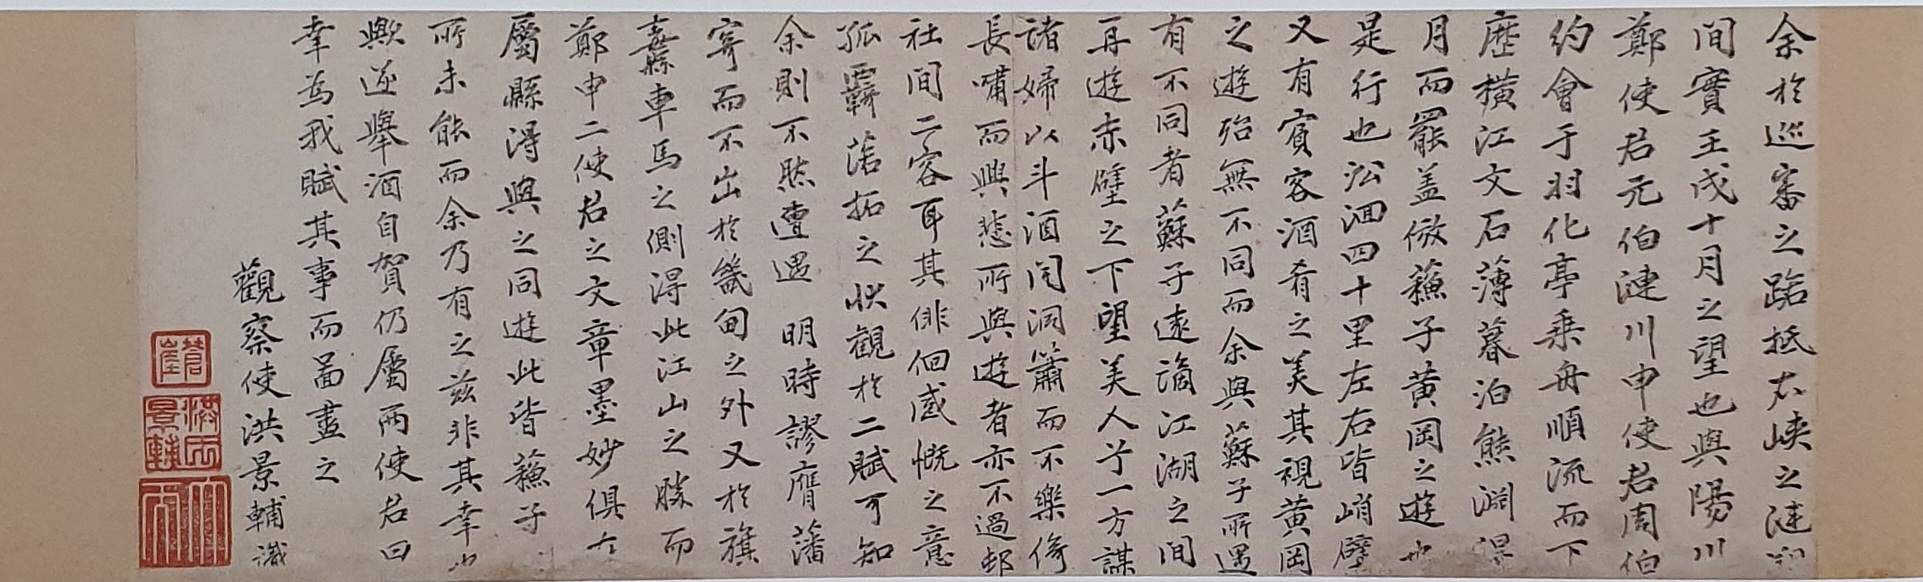 余於巡審之路抵右峽之漣
間實壬戌十月之望也與陽川
鄭使君元伯漣川申使君周伯
約會于羽化亭乗舟順流而下
歷橫江文石薄暮泊熊淵
月而罷盖倣蘓子黃岡之遊也
是行也沿洄四十里左右皆峭壁
又有賓客酒肴之美其視黃岡
之遊殆無不同而余與蘇子所遇
有不同者蘇子遠謫江湖之間
再遊赤壁之下望美人于一方謀
諸婦以斗酒聞洞簫而不樂倚
長嘯而興悲所與遊者亦不過邨
社間二客耳其徘徊感慨之意
孤覊落拓之状觀於二賦可知
余則不然遭遇 明時謬膺藩
寄而不出於畿甸之外又於旗
纛車馬之側得此江山之勝而
鄭申二使君之文章墨妙俱在
屬縣得與之同遊此皆蘓子
所未能而余乃有之兹非其幸也
歟遂舉酒自賀仍屬兩使君曰
幸為我賦其事而啚畫之
觀察使洪景輔識
蒼崖
洪氏景輔